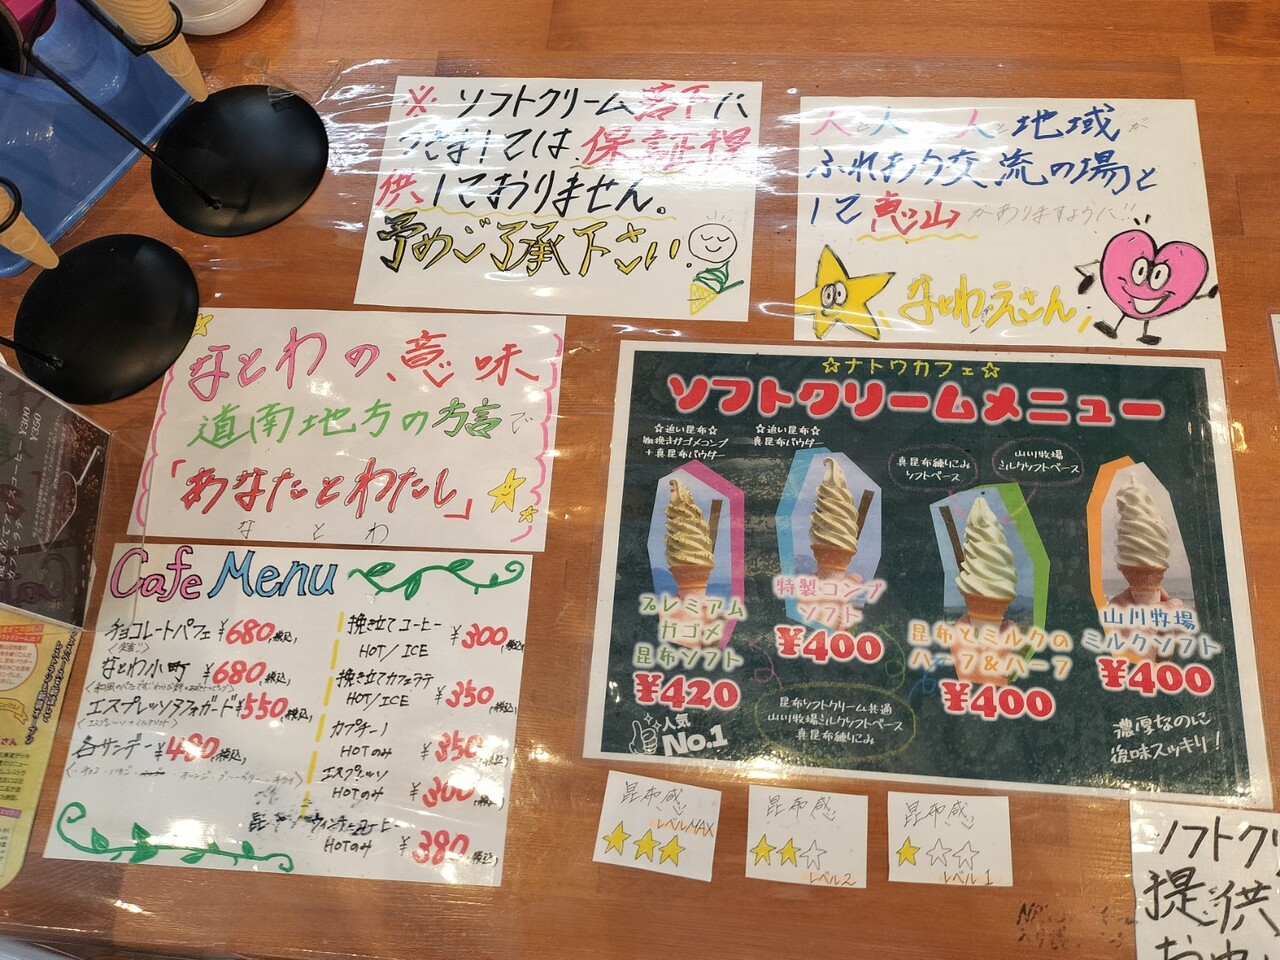 ※ ソフトクリーム落下に
つきましては 保証提
供しておりません。
予めご了承下さい。
人と人 人と地域が
ふれあう交流の場と
して恵山がありますように!!
なとわ・えさん
なとわの意味
道南地方の方言で
「あなたとわたし」
な と わ
☆ナトワカフェ☆
ソフトクリームメニュー
☆追い昆布☆
粗挽きガゴメコンブ
+真昆布パウダー
☆追い昆布☆
真昆布パウダー
真昆布練りこみ
ソフトベース
山川牧場
ミルクソフトベース
プレミアム
ガゴメ
昆布ソフト
¥420
人気
No.1
特製コンブ
ソフト
¥400
昆布とミルクの
ハーフ&ハーフ
¥400
山川牧場
ミルクソフト
¥400
昆布ソフトクリーム共通
山川牧場ミルクソフトベース
真昆布練りこみ
濃厚なのに
後味スッキリ!
Cafe Menu
チョコレートパフェ ¥680(税込)
なとわ小町 ¥680(税込)
エスプレッソアフォガード ¥550(税込)
〈エスプレッソ+ミルクソフト〉
各サンデー ¥480(税込)
挽き立てコーヒー ¥300(税込)
HOT/ICE
挽き立てカフェラテ
HOT/ICE ¥350(税込)
カプチーノ
HOTのみ ¥350(税込)
エスプレッソ
HOTのみ ¥300(税込)
ウィンナーコーヒー
HOTのみ ¥380(税込)
昆布感
レベルMAX
★★★
昆布感
★★☆
レベル2
昆布感
★☆☆
レベル1
ソフトクリ
提供
¥300
¥350